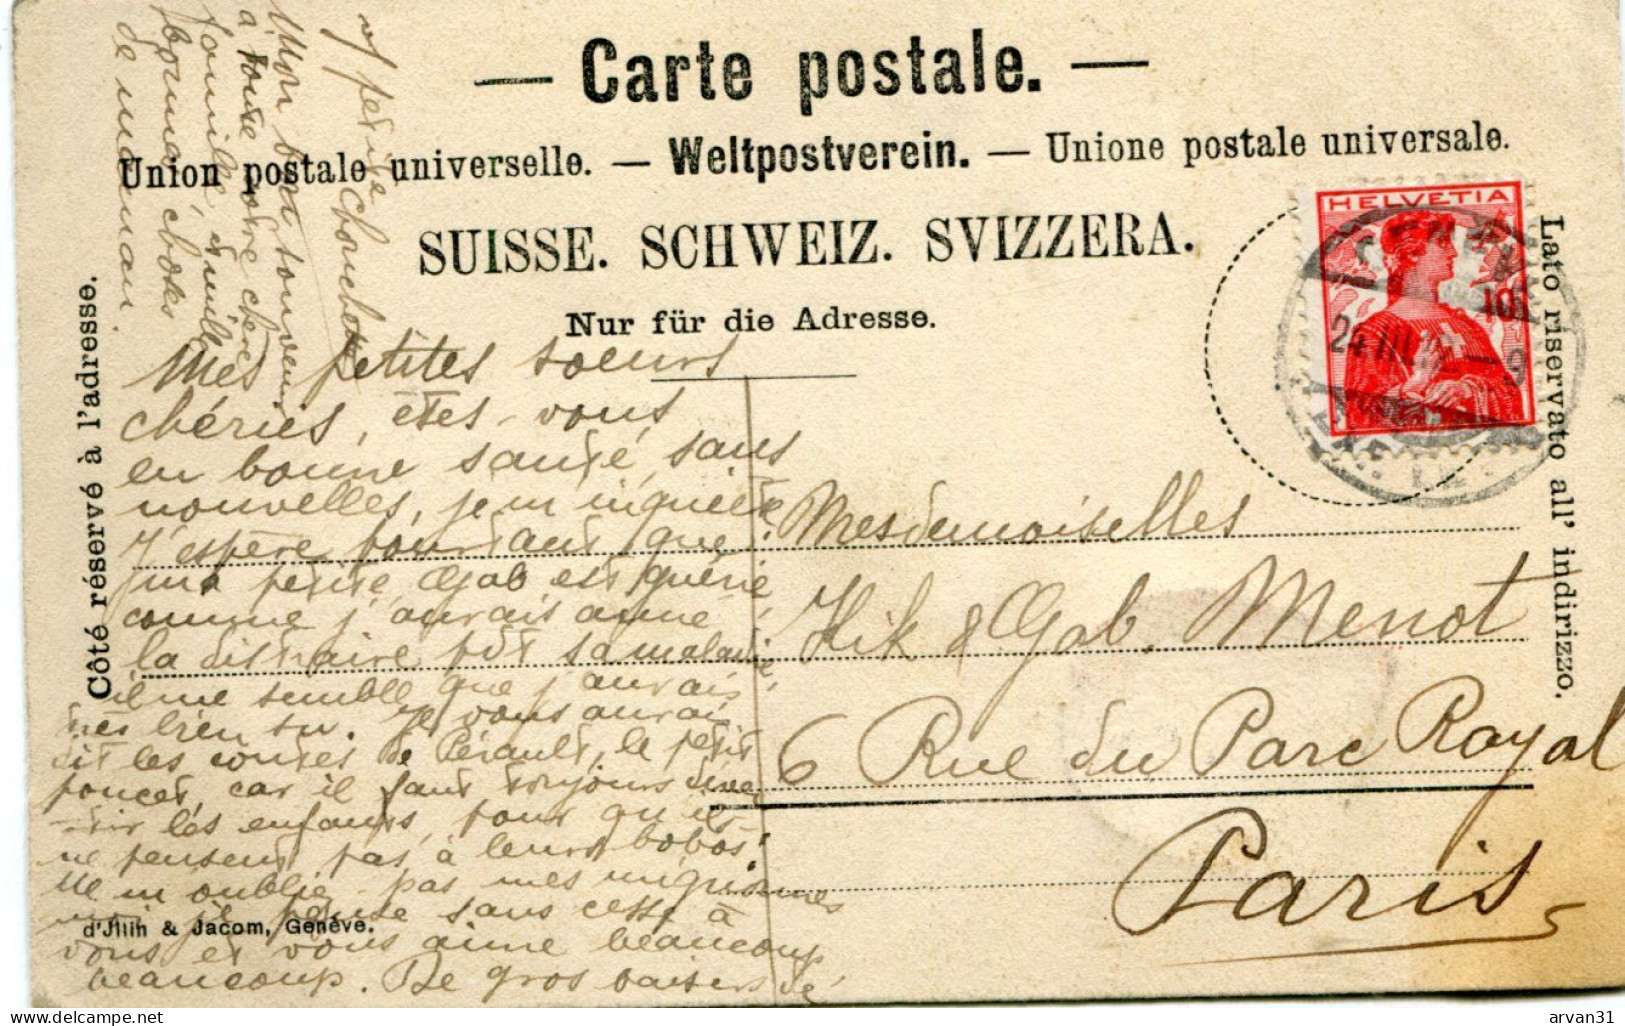 — Carte postale. —
Union postale universelle. — Weltpostverein. — Unione postale universale.
SUISSE. SCHWEIZ. SVIZZERA.
Nur für die Adresse.
Côté réservé à l'adresse.
Lato riservato all' indirizzo.
HELVETIA
10
24 III
9
Mes petites soeurs
chéries, êtes-vous
en bonne santé, sans
nouvelles, je m'inquiète.
J'espère pourtant que
ma petite Gab est guérie
comme j'aurais aimé
la distraire pdt sa maladie,
il me semble que j'aurais
très bien su. Je vous aurais
dit les contes de Pérault, le petit
poucet, car il faut toujours diver
-tir les enfants, pour qu'ils
ne pensent pas à leurs bobos!
Ne m'oubliez pas mes mignonnes
moi je pense sans cesse à
vous et vous aime beaucoup
beaucoup. De gros baisers de
petite Chouchou
Mon bon souvenir
a toute votre chère
famille, famille
bonnes choses
de maman.
Mesdemoiselles
Kik & Gab. Menot
6 Rue du Parc Royal
Paris
d'Jllin & Jacom, Genève.
arvan31